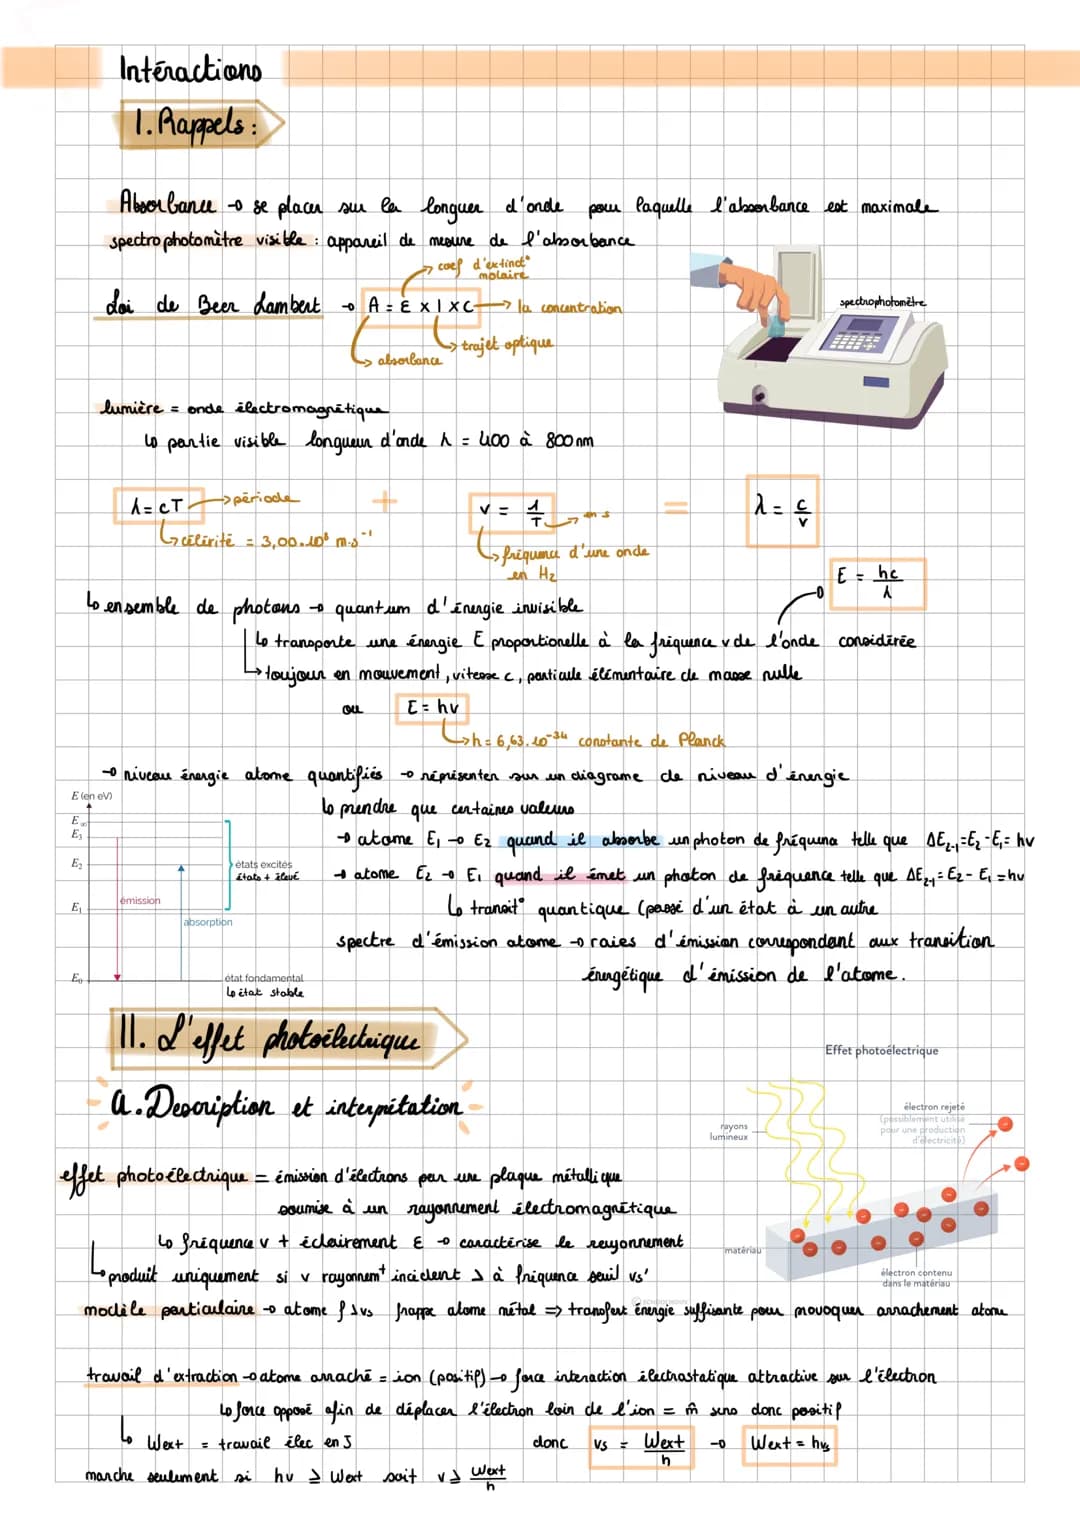 Intéractions
1. Rappels :
Absorbance → se placer sur la longuer d'onde pour laquelle l'absorbance est maximale
spectrophotomètre visible : appareil de mesure de l'absorbance
coef d'extinct° molaire
Loi de Beer Lambert → A = ε x l x C → la concentration
trajet optique
absorbance
spectrophotomètre
lumière = onde électromagnétique
↳ partie visible longueur d'onde λ = 400 à 800 nm
λ = cT → période
↳ célérité = 3,00.10⁸ m.s⁻¹
+
v = 1/T → en s
↳ fréquence d'une onde en Hz
=
λ = c/v
E = hc/λ
↳ ensemble de photons → quantum d'énergie invisible
↳ transporte une énergie E proportionelle à la fréquence v de l'onde considérée
↳ toujour en mouvement, vitesse c, particule élémentaire de masse nulle
ou E = hv
↳ h = 6,63.10⁻³⁴ constante de Planck
→ niveau énergie atome quantifiés → réprésenter sur un diagrame de niveau d'énergie
↳ prendre que certaines valeurs
→ atome E₁ → E₂ quand il absorbe un photon de fréquence telle que ΔE₂₋₁ = E₂ - E₁ = hv
→ atome E₂ → E₁ quand il émet un photon de fréquence telle que ΔE₂₋₁ = E₂ - E₁ = hv
↳ transit° quantique (passé d'un état à un autre
spectre d'émission atome → raies d'émission correspondant aux transition
énergétique d'émission de l'atome.
E (en eV)
E∞
E₃
E₂
E₁
E₀
émission
absorption
états excités
états + élevé
état fondamental
↳ état stable
II. L'effet photoélectrique
a. Description et interprétation
Effet photoélectrique
rayons lumineux
électron rejeté
(possiblement utilisé
pour une production
d'électricité)
matériau
électron contenu
dans le matériau
effet photoélectrique = émission d'électrons par une plaque métallique
soumise à un rayonnement électromagnétique
↳ fréquence v + éclairement E → caractérise le rayonnement
↳ produit uniquement si v rayonnem^t incident ≥ à fréquence seuil vs'
modèle particulaire → atome f ≥ vs frappe atome métal => transfert énergie suffisante pour provoquer arrachement atome
travail d'extraction → atome arraché = ion (positif) → force interaction électrostatique attractive sur l'électron
↳ force opposé afin de déplacer l'électron loin de l'ion = m̂ sens donc positif
↳ Wext = travail élec en J donc vs = Wext/h → Wext = hvs
marche seulement si hv ≥ Wext soit v ≥ Wext/h